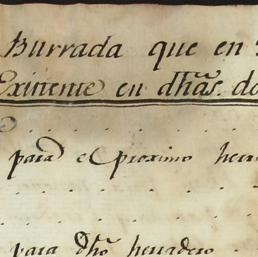 Burrada que en
Existente en dhãs. do
para el proximo herra
para dhõ herradero.